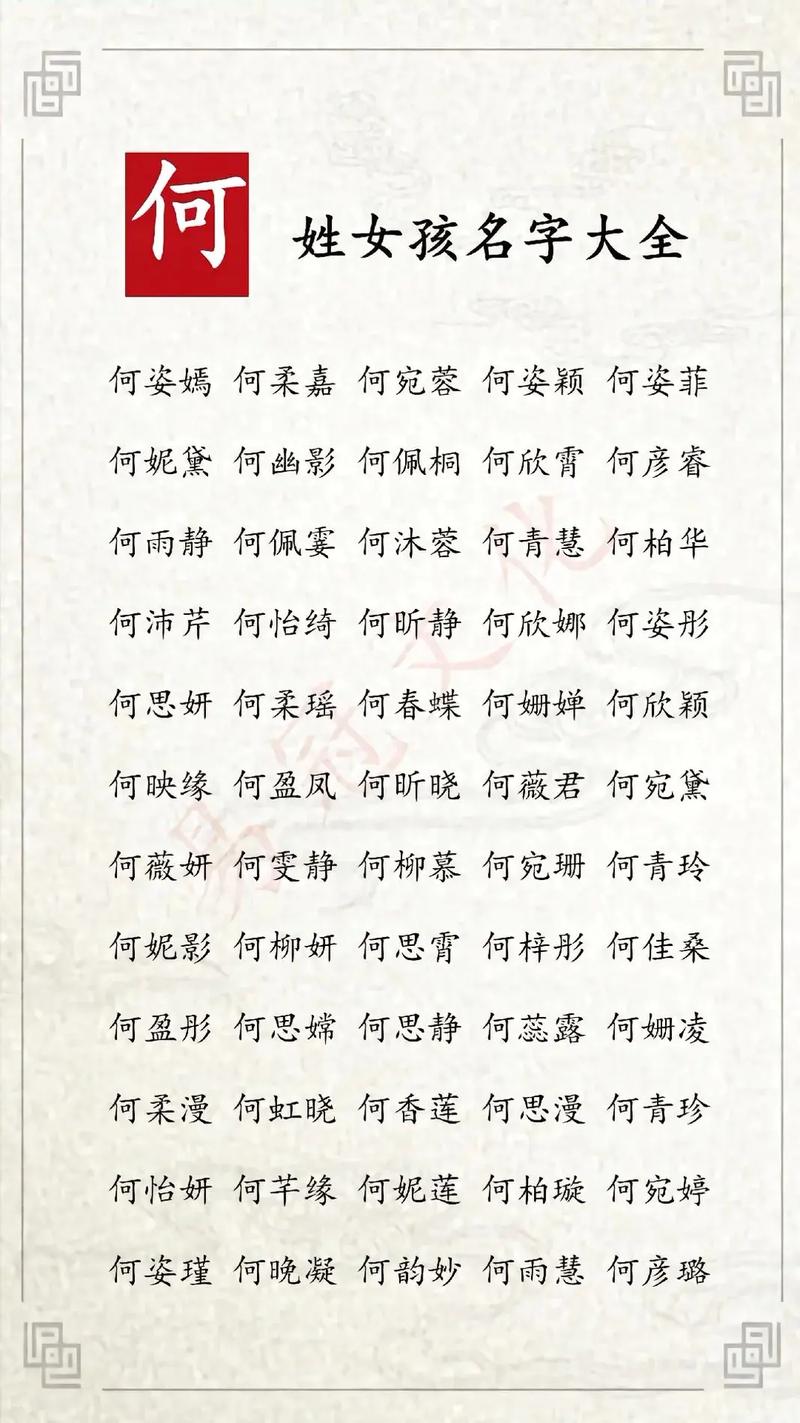 何 姓女孩名字大全
何姿嫣 何柔嘉 何宛蓉 何姿颖 何姿菲
何妮黛 何幽影 何佩桐 何欣霄 何彦睿
何雨静 何佩霎 何沐蓉 何青慧 何柏华
何沛芹 何怡绮 何昕静 何欣娜 何姿彤
何思妍 何柔瑶 何春蝶 何姗婵 何欣颖
何映缘 何盈凤 何昕晓 何薇君 何宛黛
何薇妍 何雯静 何柳慕 何宛珊 何青玲
何妮影 何柳妍 何思霄 何梓彤 何佳桑
何盈彤 何思嫦 何思静 何蕊露 何姗凌
何柔漫 何虹晓 何香莲 何思漫 何青珍
何怡妍 何芊缘 何妮莲 何柏璇 何宛婷
何姿瑾 何晚凝 何韵妙 何雨慧 何彦璐